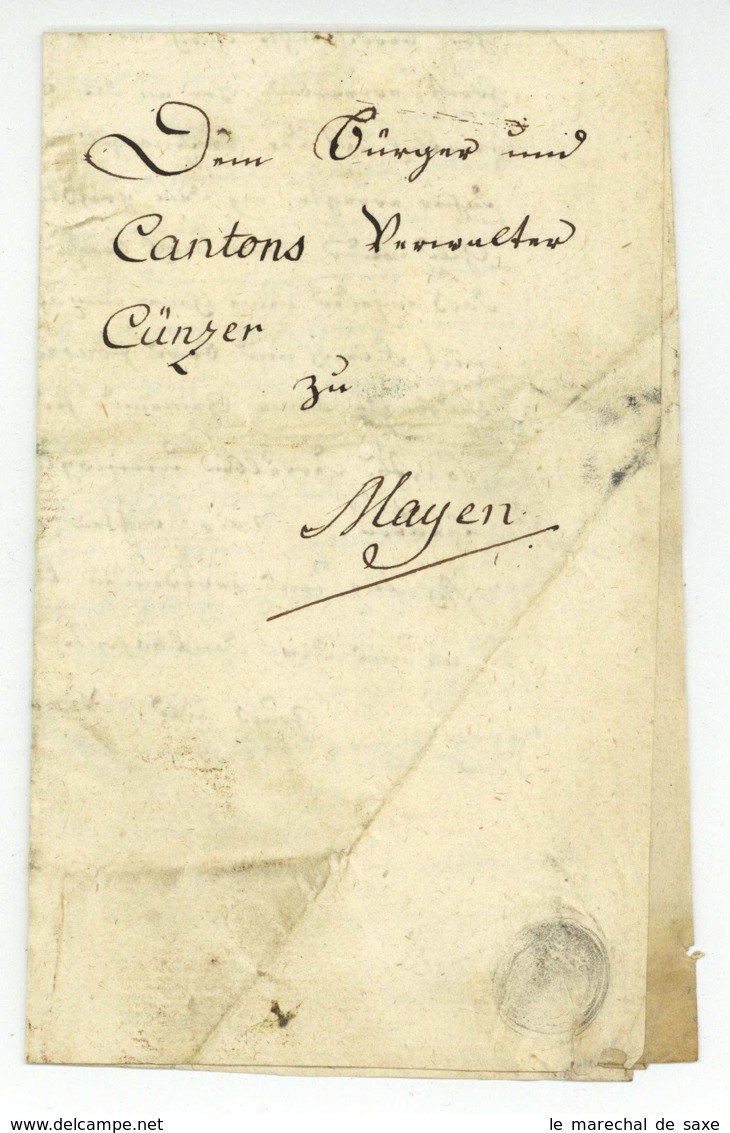 Dem Bürger und
Cantons Verwalter
Cünzer
zu
Mayen
le marechal de saxe